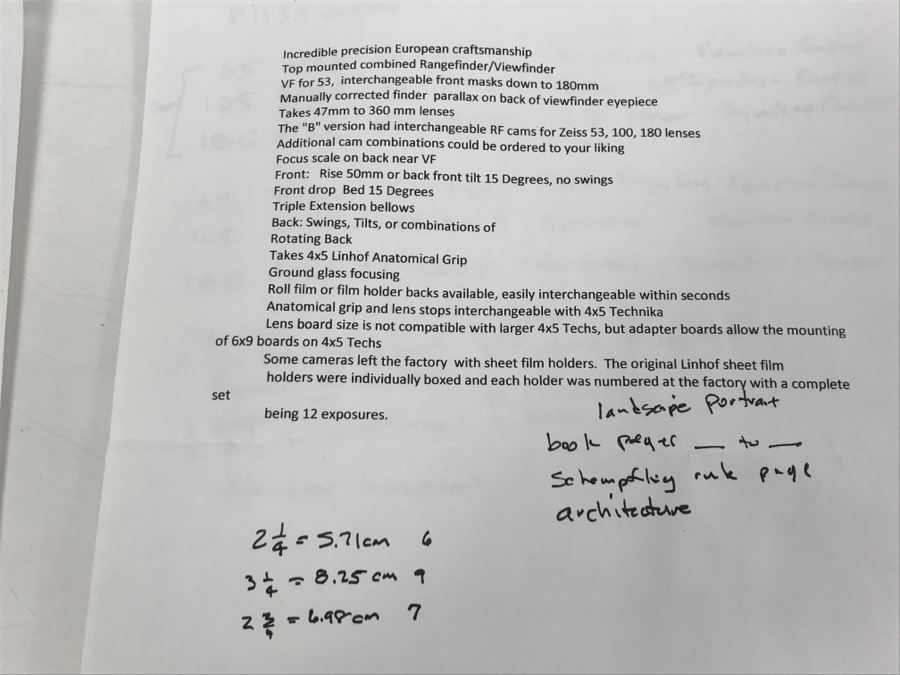 Incredible precision European craftsmanship
Top mounted combined Rangefinder/Viewfinder
VF for 53,  interchangeable front masks down to 180mm
Manually corrected finder  parallax on back of viewfinder eyepiece
Takes 47mm to 360 mm lenses
The "B" version had interchangeable RF cams for Zeiss 53, 100, 180 lenses
Additional cam combinations could be ordered to your liking
Focus scale on back near VF
Front:   Rise 50mm or back front tilt 15 Degrees, no swings
Front drop  Bed 15 Degrees
Triple Extension bellows
Back: Swings, Tilts, or combinations of
Rotating Back
Takes 4x5 Linhof Anatomical Grip
Ground glass focusing
Roll film or film holder backs available, easily interchangeable within seconds
Anatomical grip and lens stops interchangeable with 4x5 Technika
Lens board size is not compatible with larger 4x5 Techs, but adapter boards allow the mounting
of 6x9 boards on 4x5 Techs
Some cameras left the factory  with sheet film holders.  The original Linhof sheet film
holders were individually boxed and each holder was numbered at the factory with a complete
set
being 12 exposures.
landscape portrait
book pages __ to __
rule page
architecture
2 1/4 = 5.71cm 6
3 1/4 = 8.25 cm 9
2 3/4 = 6.98cm 7